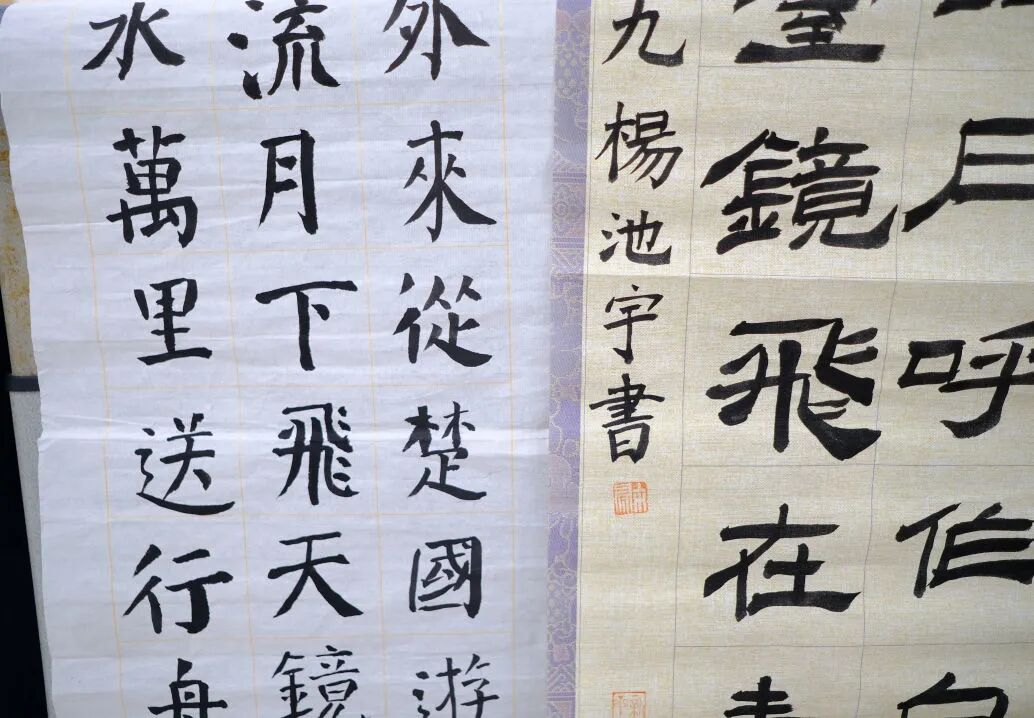 月呼作白
臺鏡飛在青
九楊池宇書
外來從楚國遊
流月下飛天鏡
水萬里送行舟